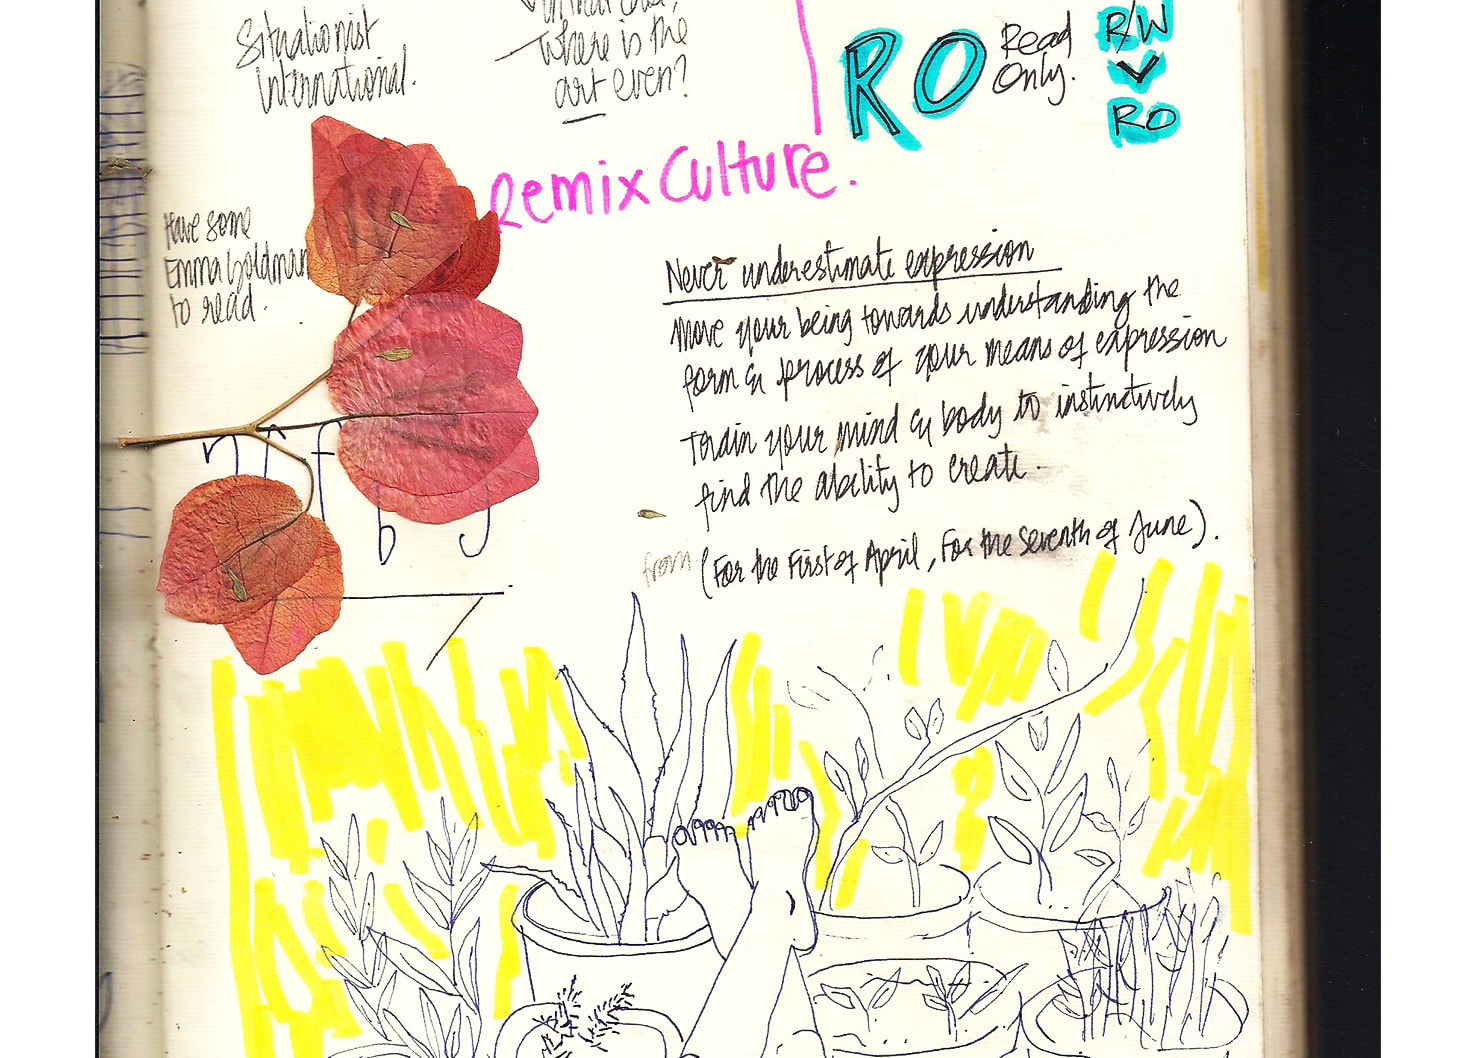 Situationist
International.
where is the
art even?
RO
Read
Only.
R/W
RO
Remix Culture.
Have some
Emma Goldman
to read.
Never underestimate expression
Move your being towards understanding the
form & process of your means of expression
Train your mind & body to instinctively
find the ability to create.
from (For the First of April, For the Seventh of June).